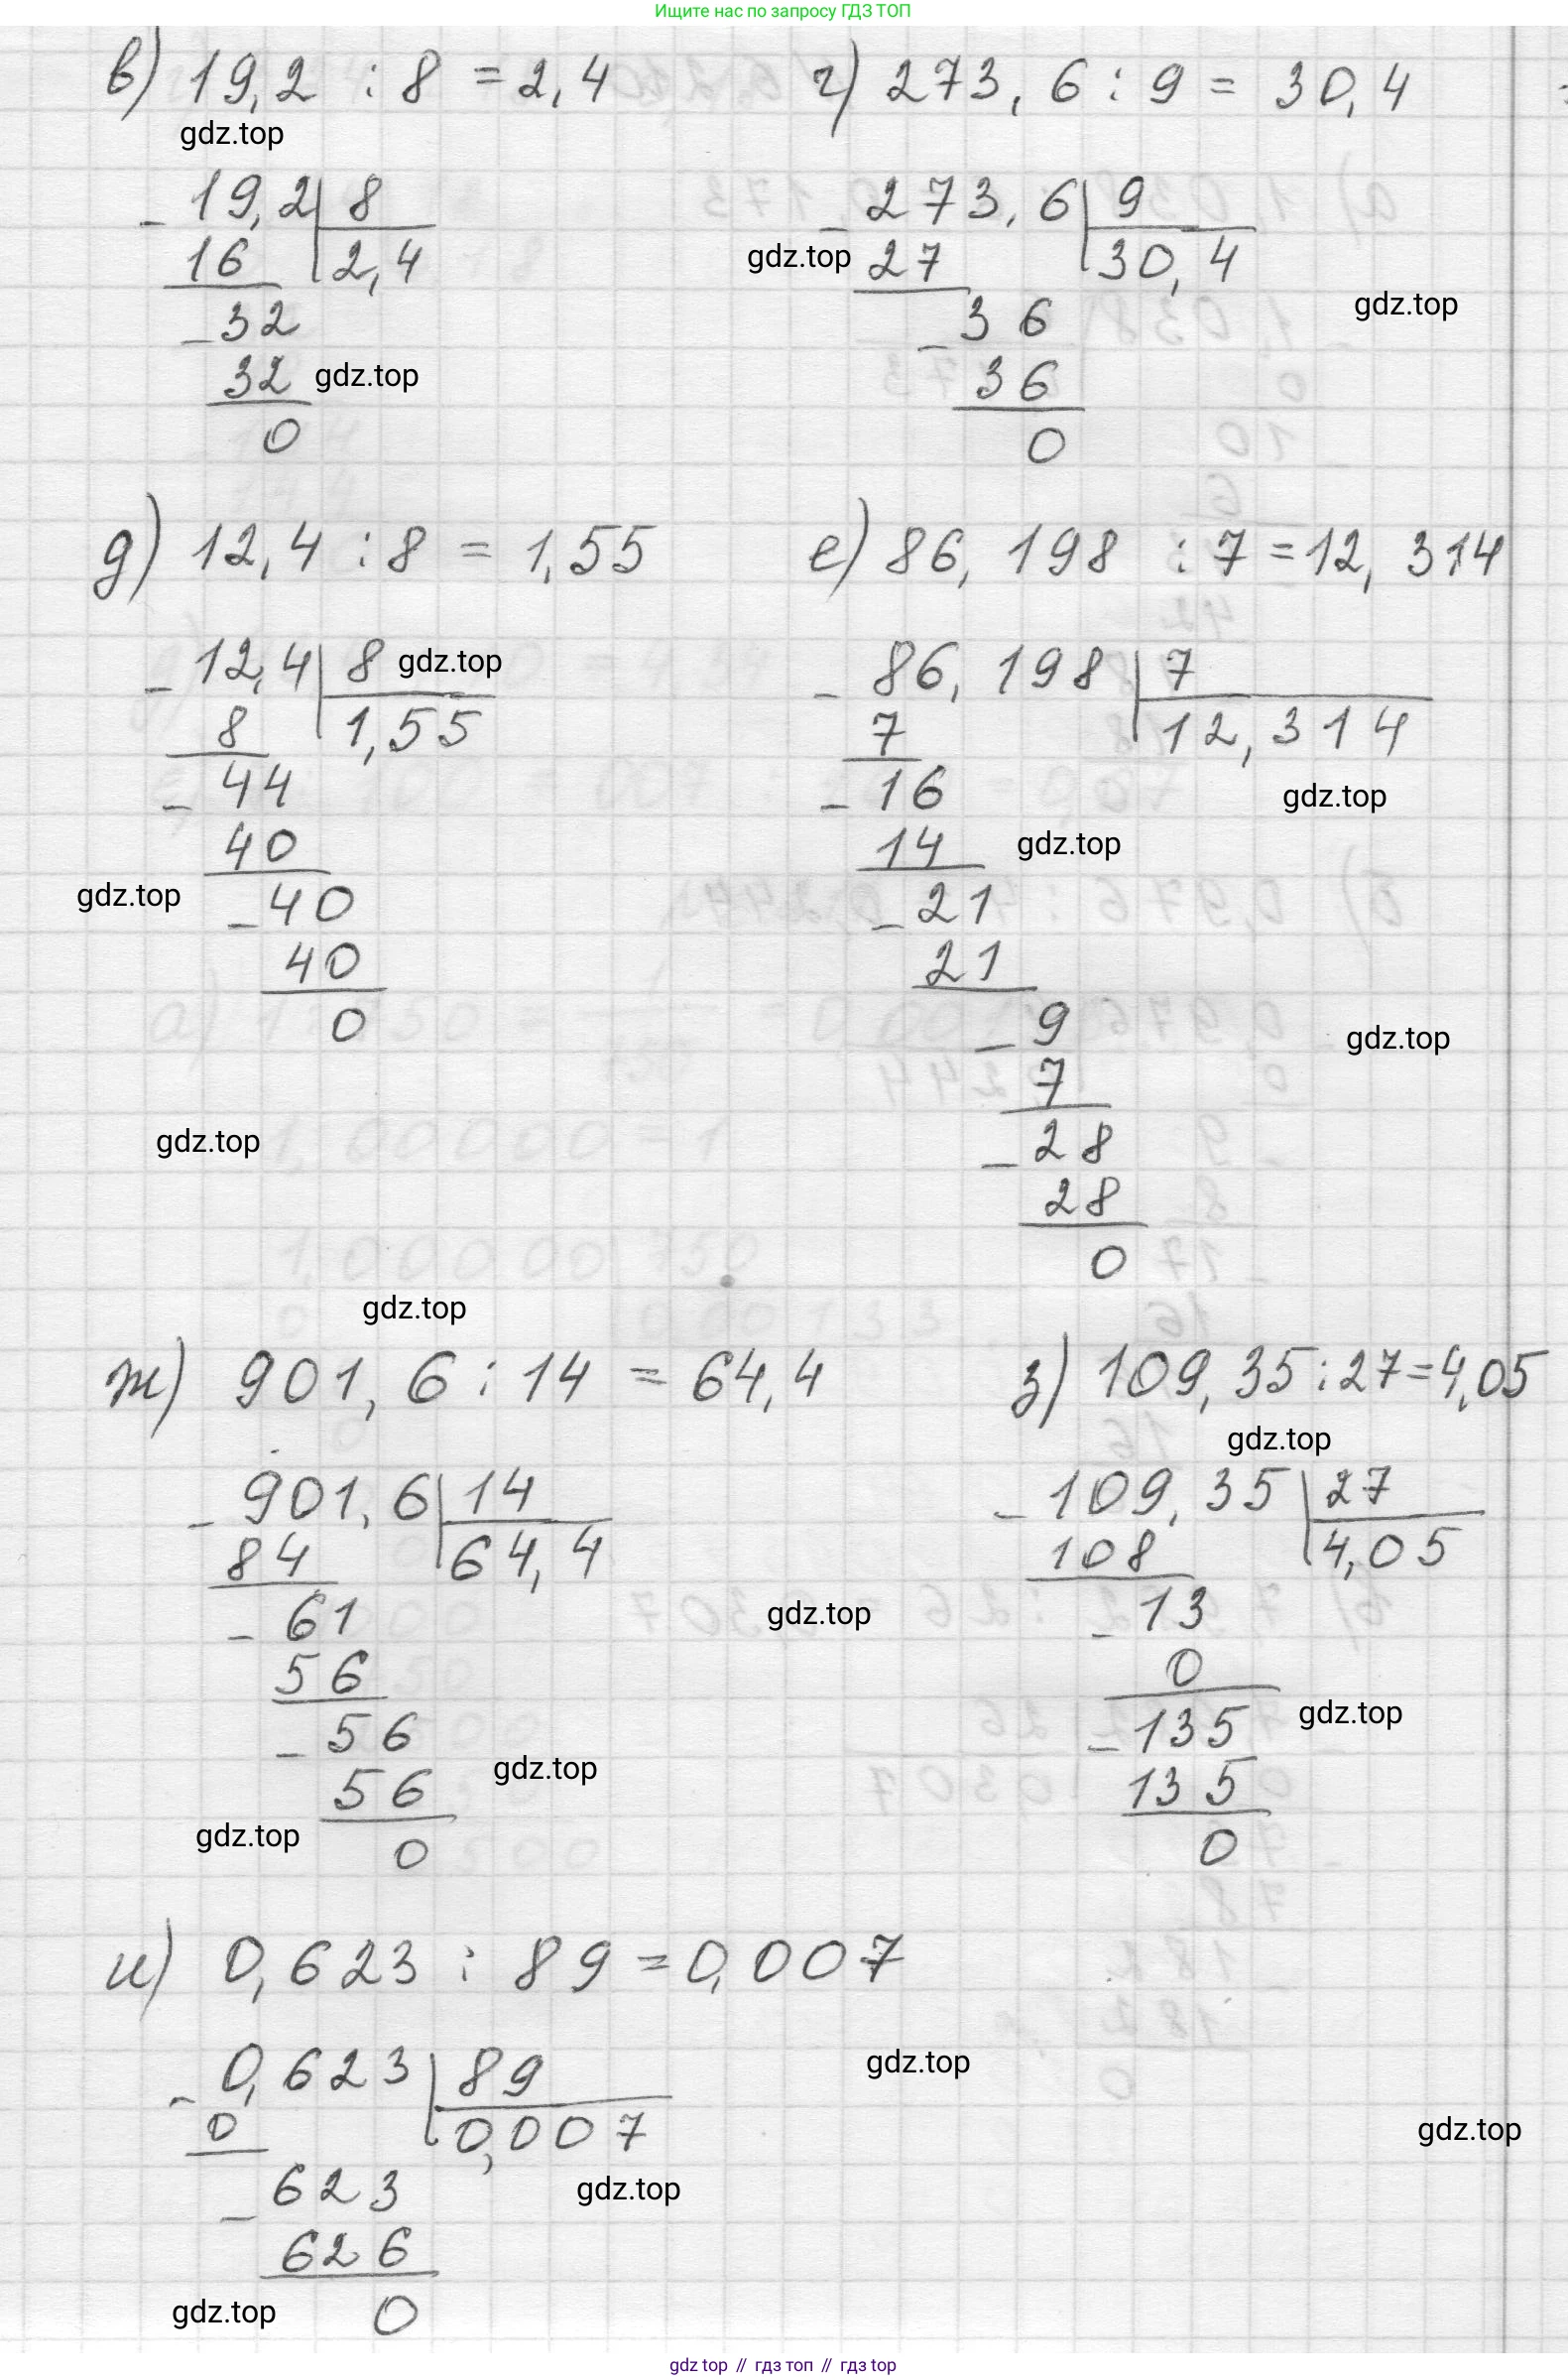 Ищите нас по запросу ГДЗ ТОП
в) 19,2 : 8 = 2,4
gdz.top
19,2 | 8
- 16 | 2,4
- 32
32 gdz.top
0
г) 273,6 : 9 = 30,4
- 273,6 | 9
gdz.top 27 | 30,4
gdz.top
- 36
36
0
д) 12,4 : 8 = 1,55
- 12,4 | 8 gdz.top
8 | 1,55
- 44
40
gdz.top
- 40
40
0
gdz.top
е) 86,198 : 7 = 12,314
- 86,198 | 7
7 | 12,314
- 16 gdz.top
14 gdz.top
- 21
21
- 9 gdz.top
7
- 28
28
0
gdz.top
ж) 901,6 : 14 = 64,4
- 901,6 | 14
84 | 64,4
- 61
56
- 56
gdz.top
56
gdz.top
0
з) 109,35 : 27 = 4,05
gdz.top
- 109,35 | 27
108 | 4,05
gdz.top
- 13
0
gdz.top
- 135
135
0
и) 0,623 : 89 = 0,007
- 0,623 | 89
gdz.top
0 | 0,007
gdz.top
- 623
gdz.top
626
0
gdz.top
gdz top // гдз топ // гдз top